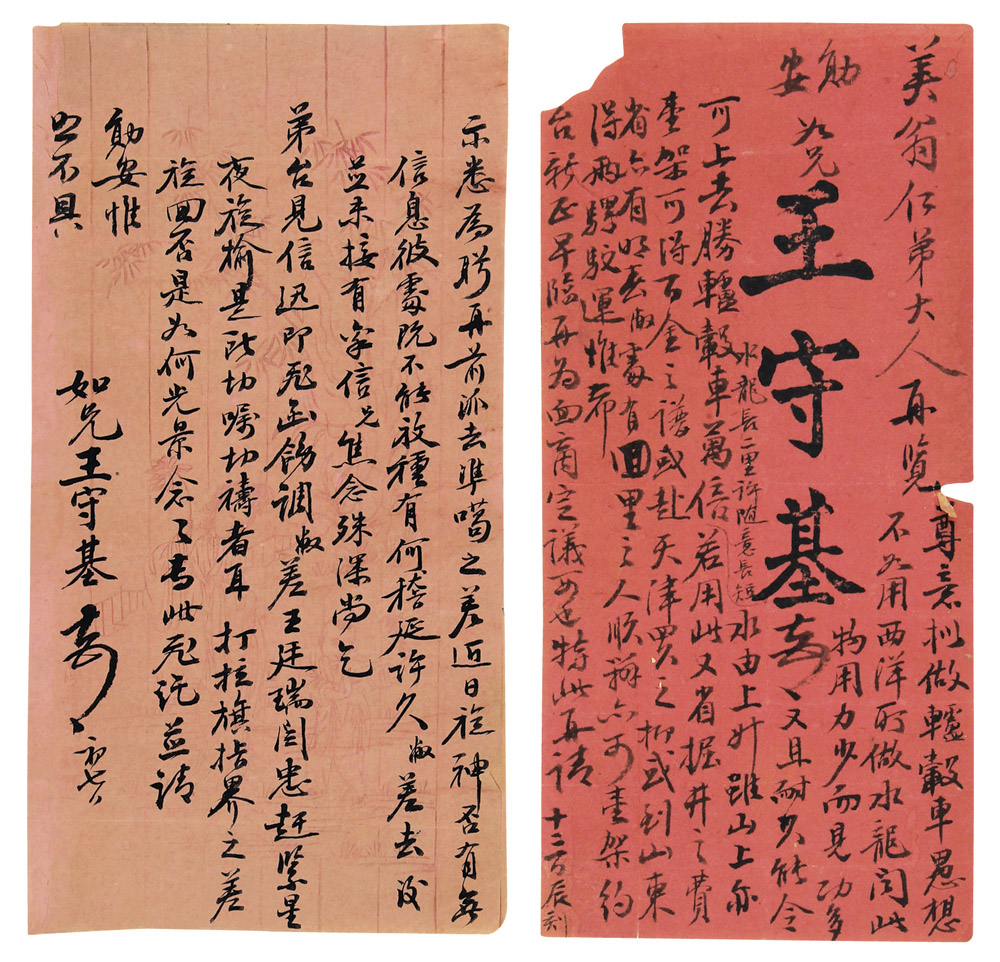 美翁仁弟大人再覽 尊意拟做轤轂車愚想
不如用西洋所做水龍聞此
物用力少而見功多
又且耐久能令
水由上升雖山上亦
可上去勝轤轂車萬倍若用此又省掘井之費
水龍長二里許隨意長短
壹架可得百金之譜或赴天津買之抑或到山東
省亦有明春敝處有回里之人順辦亦可壹架約
得兩騾駁運惟希
台新正早臨再為面商定議可也特此再請
勛
安
如兄王守基
十二日辰刻
示悉為盼再前派去準噶之差近日旋神否有無
信息彼處既不能放種有何稽延許久敝差去後
並未接有字信兄焦念殊深尚乞
弟台見信迅即飛函飭調敝差王廷瑞閻忠赶緊星
夜旋榆是所切嘱切禱者耳 打拉旗指界之差
旋回否是如何光景念念專此飛託並請
勛安惟
照不具
如兄王守基 初七日